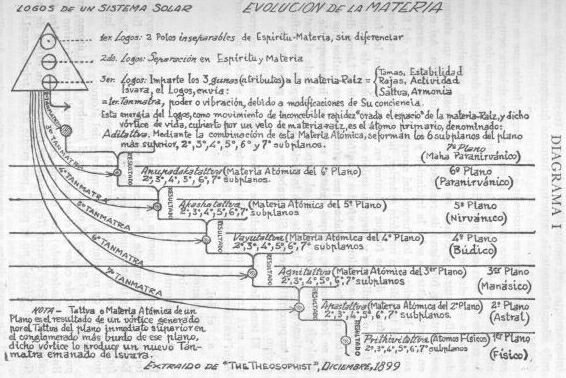 LOGOS DE UN SISTEMA SOLAR
EVOLUCION DE LA MATERIA
1er. Logos: 2 Polos inseparables de Espíritu-Materia, sin diferenciar
2do. Logos: Separación en Espíritu y Materia
3er. Logos: Imparte los 3 gunas (atributos) a la materia-Raíz =
Tamas, Estabilidad
Rajas, Actividad
Satva, Armonia
Isvara, el Logos, envía:
= 1er. Tanmatra, poder o vibración, debido a modificaciones de Su conciencia
Esta energía del Logos, como movimiento de inconcebible rapidez "orada el espacio" de la materia-Raíz, y dicho
vórtice de vida, cubierto por un velo de materia-raíz, es el átomo primario, denominado:
Aditattva. Mediante la combinación de esta Materia Atómica, se forman los 6 subplanos del plano
más superior, 2°, 3°, 4°, 5°, 6° y 7° subplanos.
7° Plano
(Maha Paranirvánico)
2° TANMATRA
RESULTADO
Anupadakatattva (Materia Atómica del 6° Plano)
2°, 3°, 4°, 5°, 6°, 7° subplanos.
6° Plano
(Paranirvánico)
4° TANMATRA
RESULTADO
Akashatattva (Materia Atómica del 5° Plano)
2°, 3°, 4°, 5°, 6°, 7° subplanos
5° Plano
(Nirvánico)
5° TANMATRA
RESULTADO
Vayutattva (Materia Atómica del 4° Plano)
2°, 3°, 4°, 5°, 6°, 7° subplanos
4° Plano
(Búdico)
6° TANMATRA
RESULTADO
Agnitattva (Materia Atómica del 3er Plano)
2°, 3°, 4°, 5°, 6°, 7° subplanos
3er Plano
(Manásico)
7° TANMATRA
RESULTADO
Apastattva (Materia Atómica del 2° Plano)
2°, 3°, 4°, 5°, 6°, 7° subplanos.
2° Plano
(Astral)
RESULTADO
Prithivitattva (Atomos Físicos)
2°, 3°, 4°, 5°, 6°, 7° subplanos
1er Plano
(Físico)
NOTA - Tattva o Materia Atómica de un
Plano es el resultado de un vórtice generado
por el Tattva del plano inmediato superior en
el conglomerado más burdo de ese plano,
dicho vórtice lo produce un nuevo Tan-
matra emanado de Isvara.
EXTRAIDO DE "THE THEOSOPHIST", DICIEMBRE, 1899
DIAGRAMA I